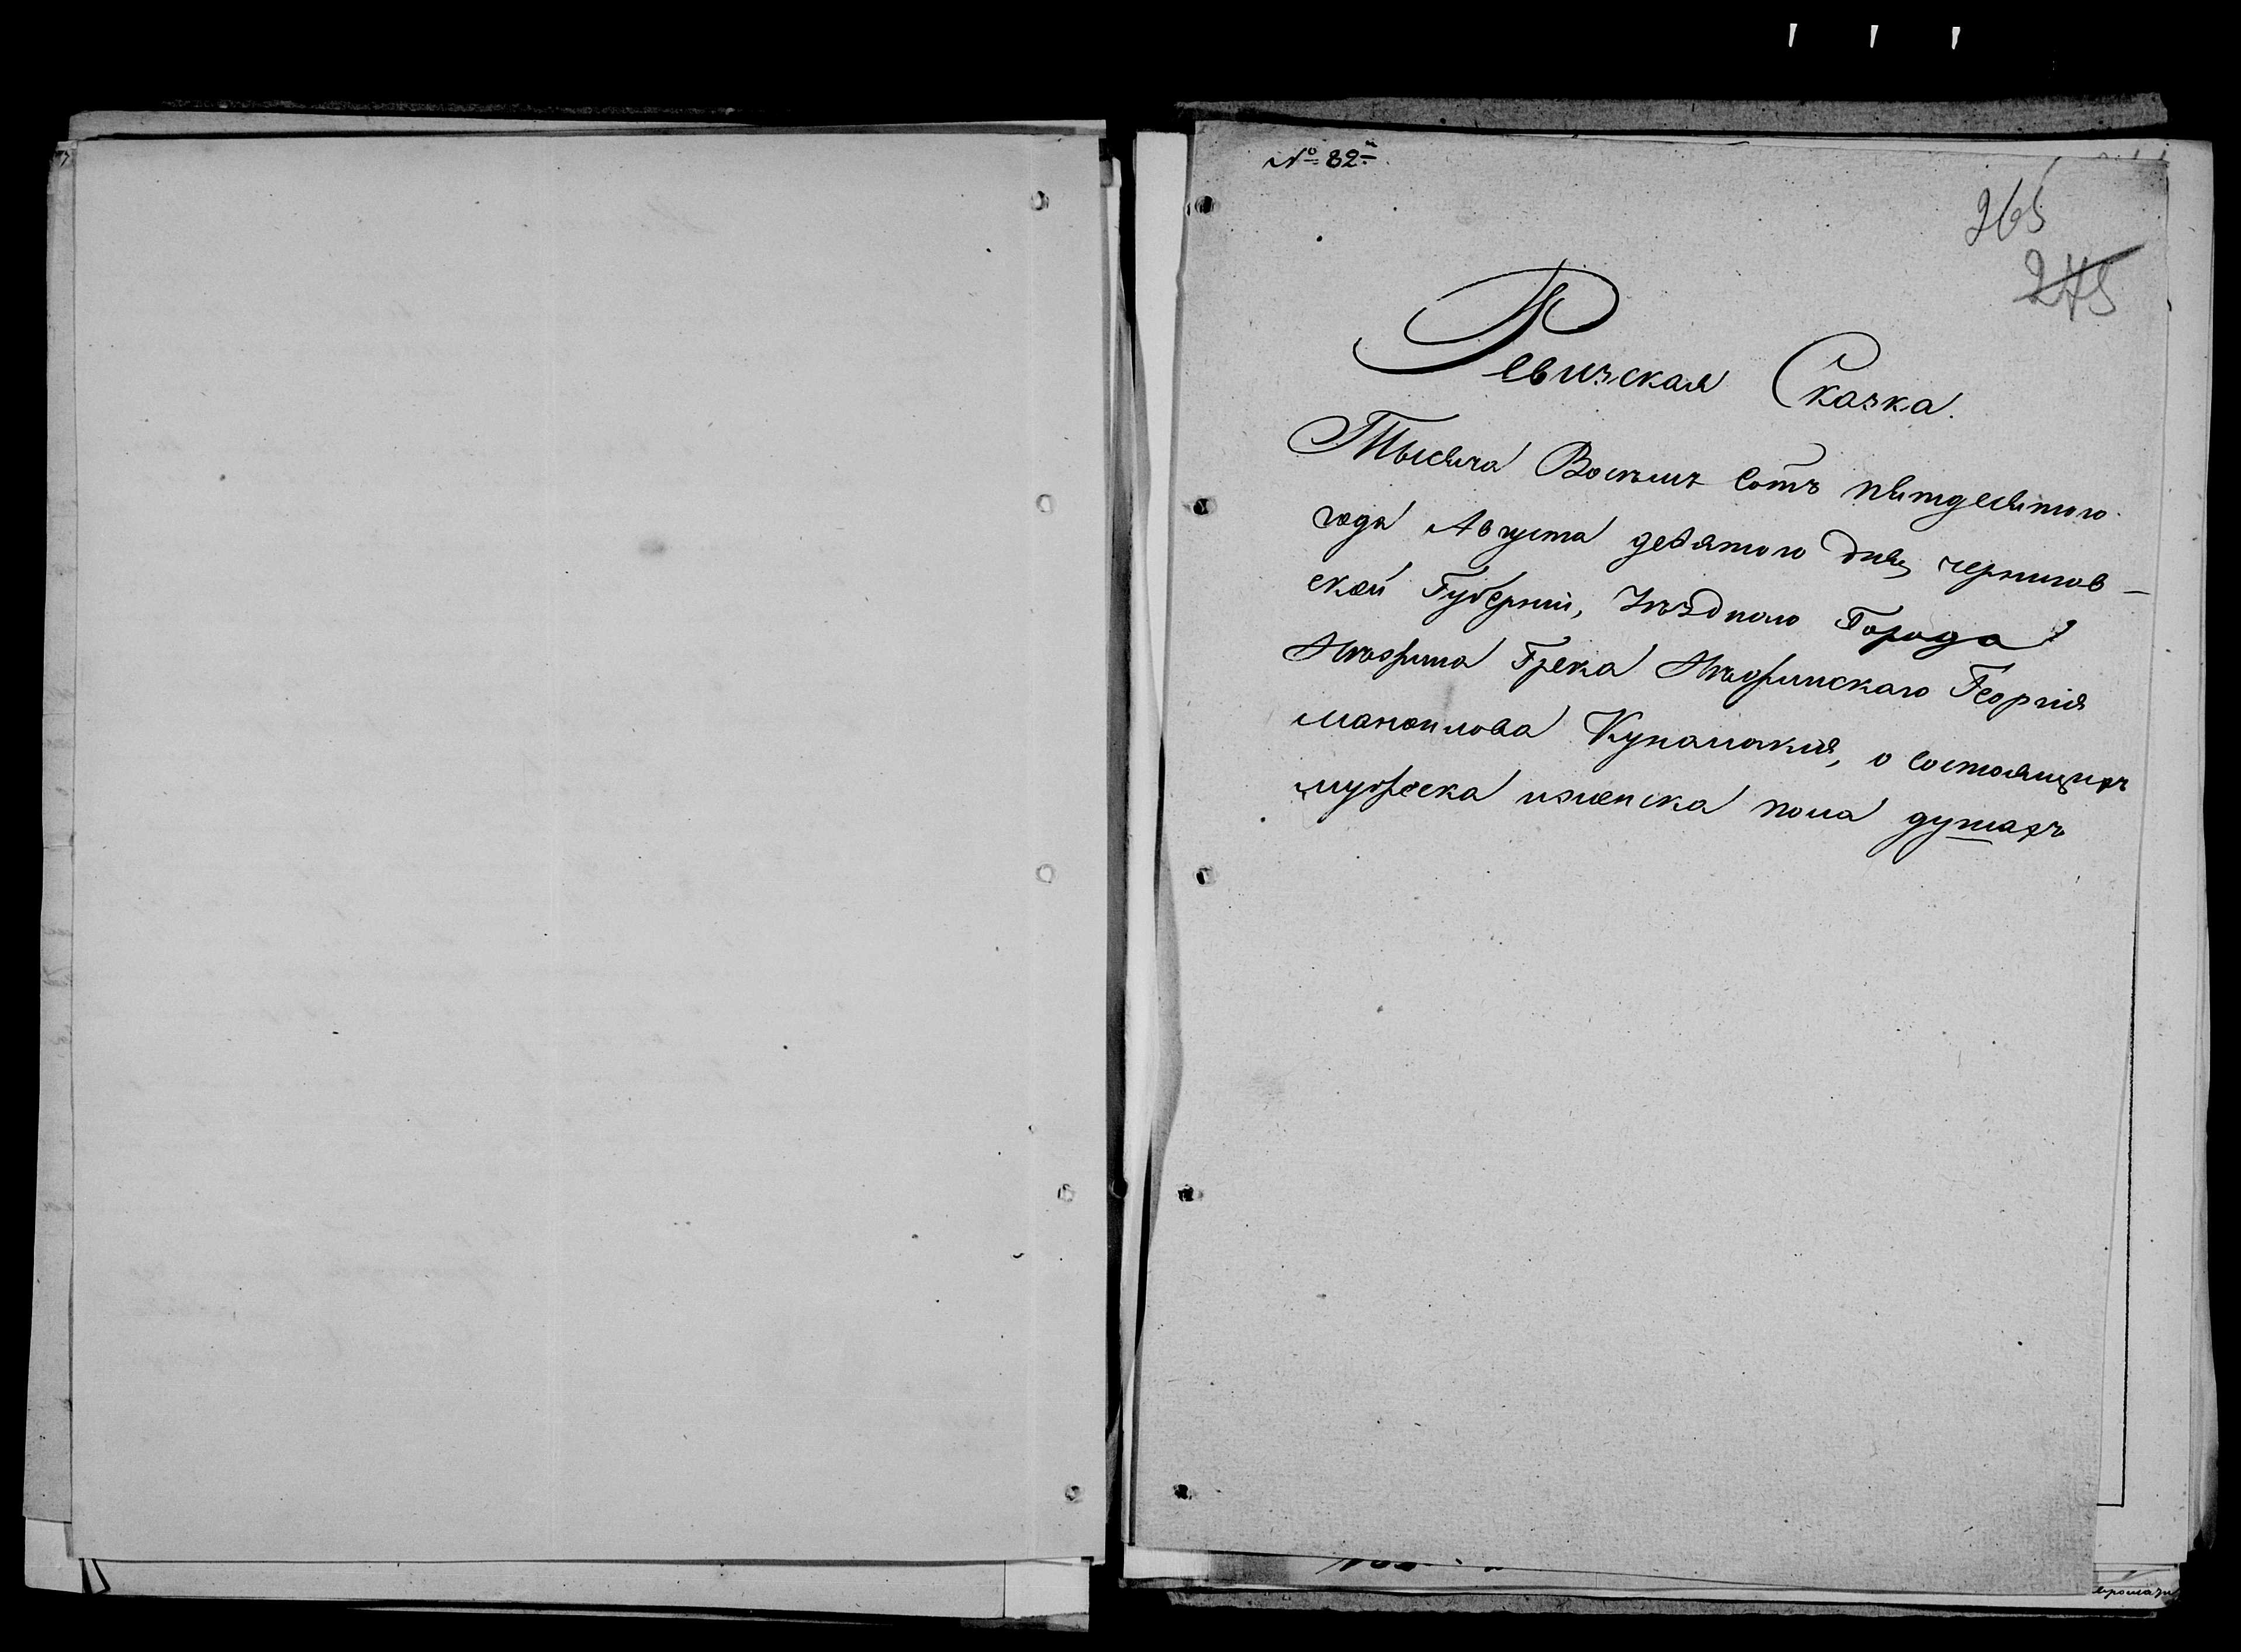 № 82.
265
275
Ревизская Сказка.
Тысяча Восемь сотъ пятдесятого
года Августа девятого дня, чернигов-
ской Губерніи, Уѣзднаго Города
Нѣжина Грека Нѣжинскаго Георгія
манойлова Кунамакія, о состоящихъ
мужеска иженска пола душахъ